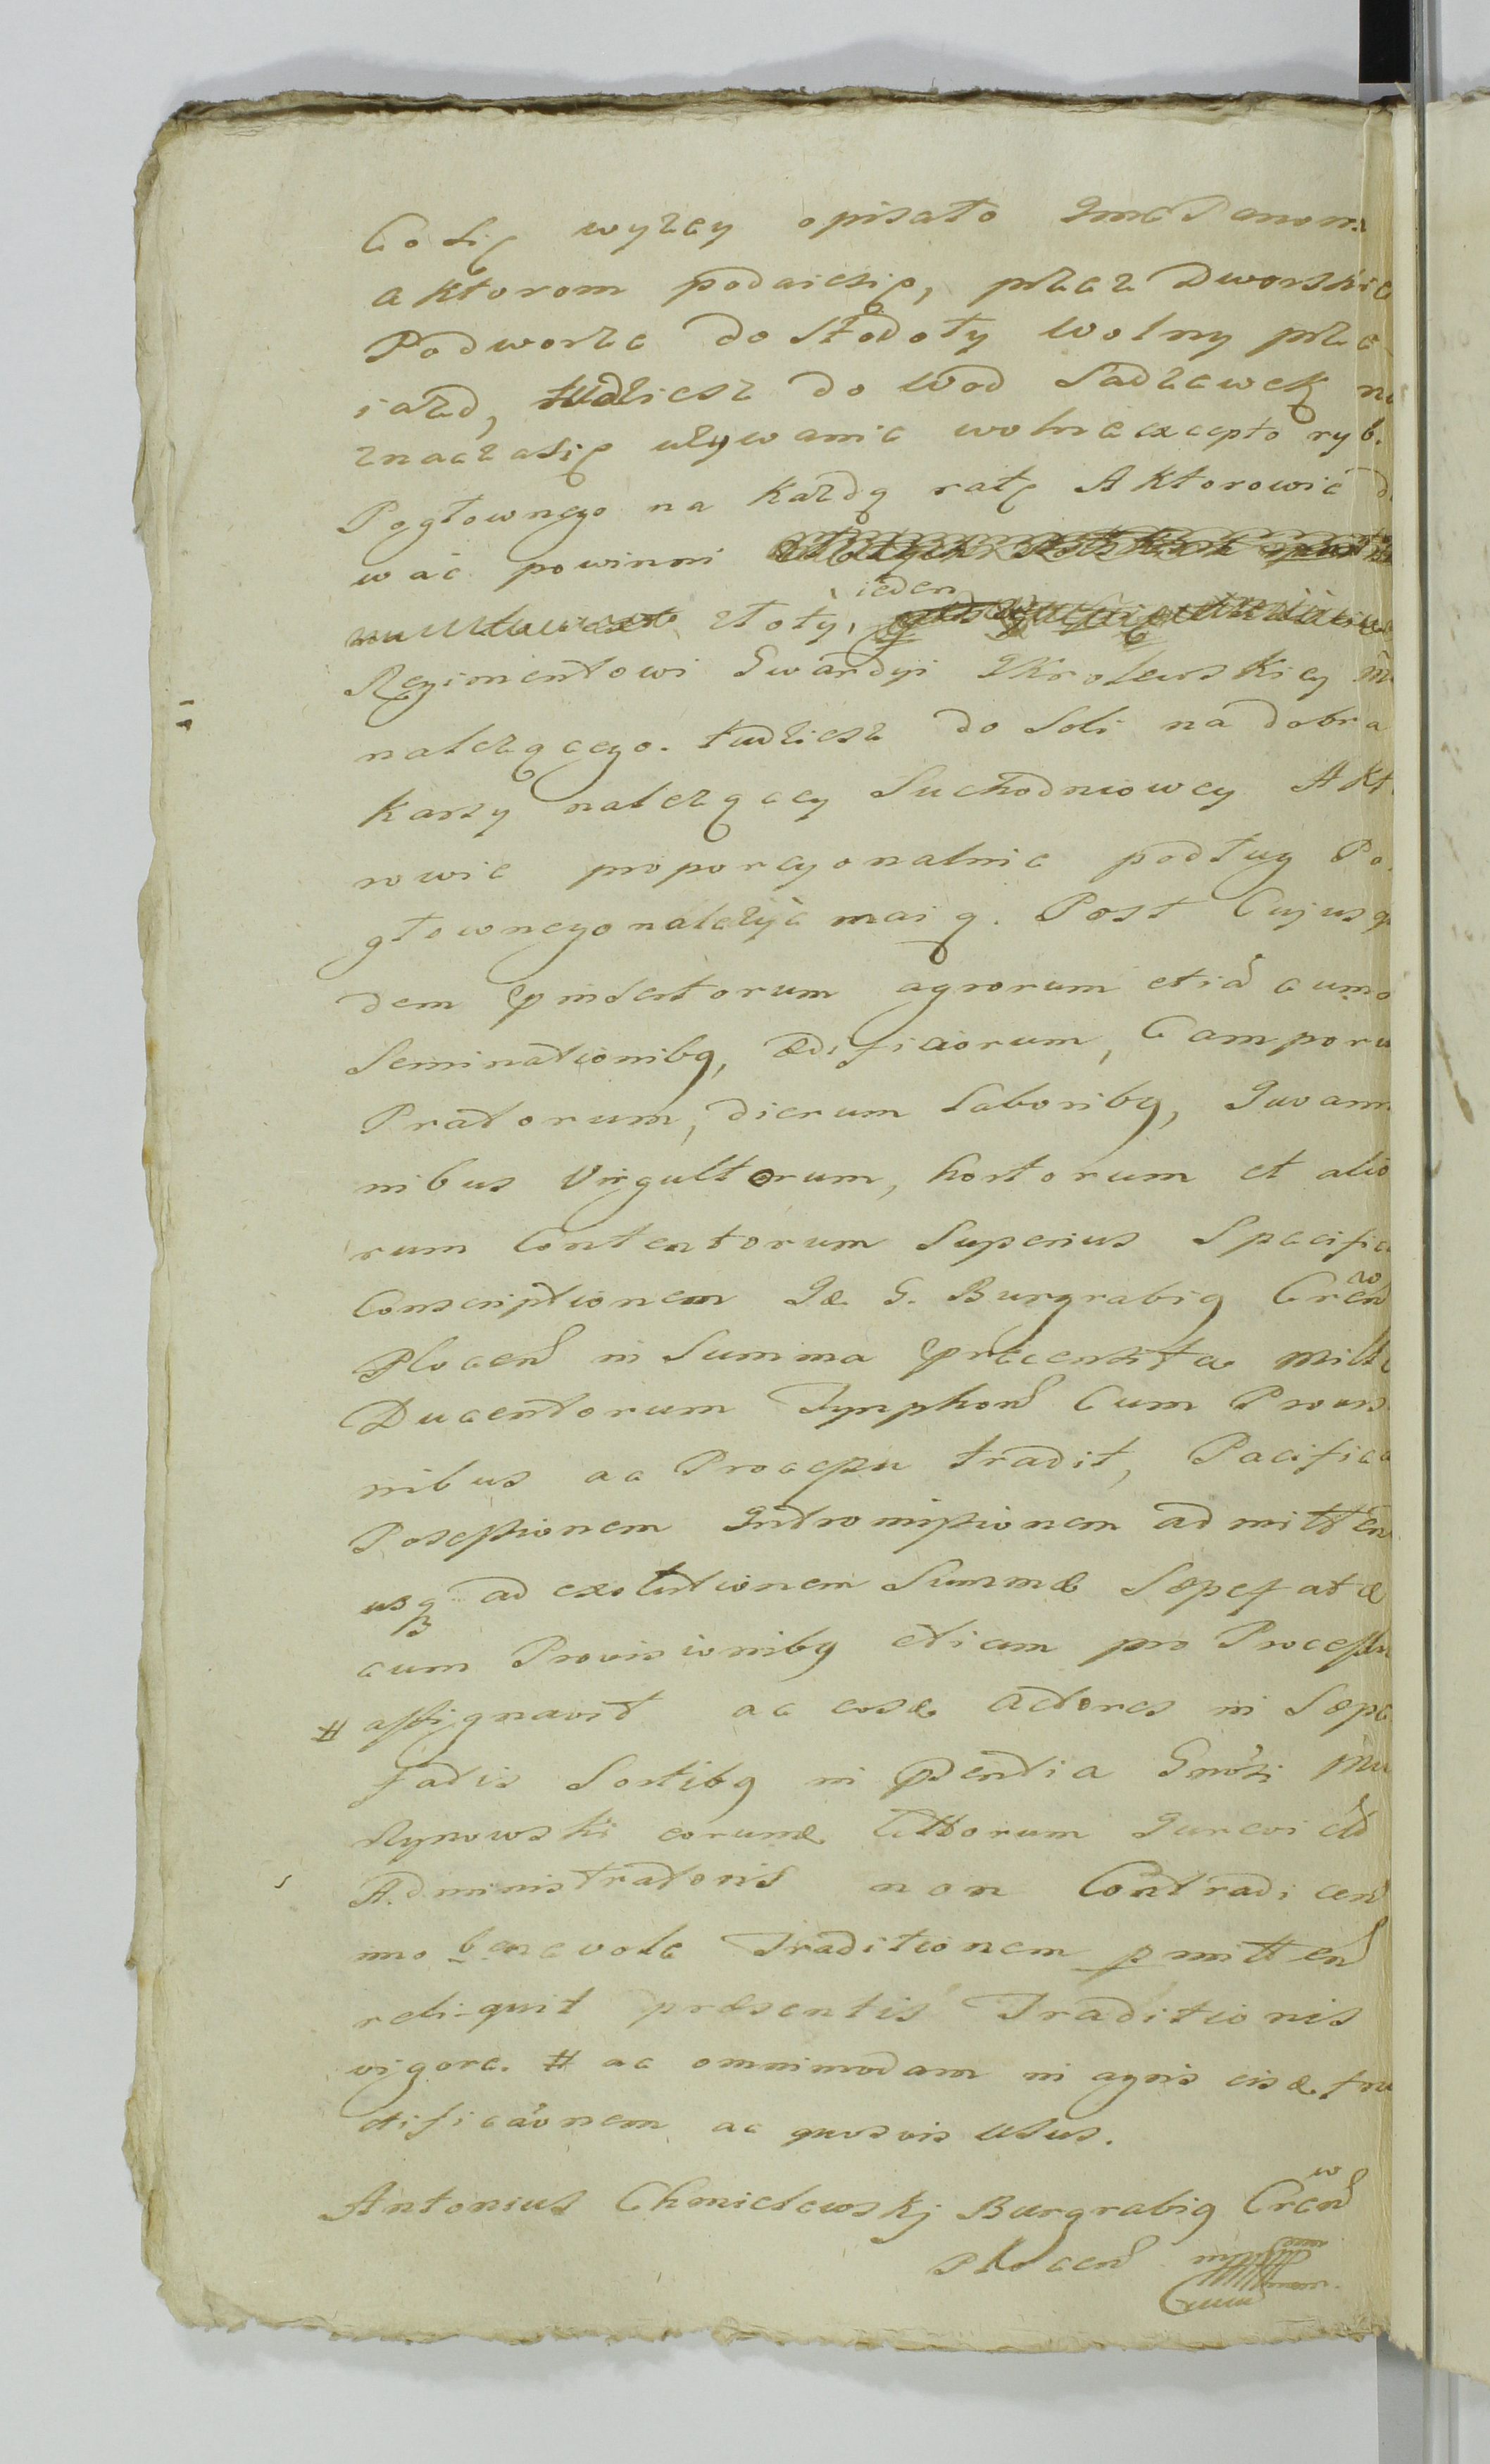 Co się wyzey opisało ImcPanom
aktorom podaiesię, przez Dworskie
Podworze do Stodoły wolny prze
iazd, tudziesz do wod Sadzawek na
znaczasię uzywanie wolne excepto ryb.
Pogłownego na kazdą ratę Aktorowie d
wać powinni
złoty, ieden
Regimentowi Gwardyi JKrolewskiey
nalezącego. tudziesz do Soli na dobra
Karsy nalezącey Suchodniowey Akt
rowie proporcyonalnie podług Po
głownego nalezyć maią. Post Cujusq
dem pinsertorum agrorum etiã cum
Seminationibq, ædificiorum, Camporu
Pratorum, dierum Laboribq, Quoann
nibus Virgultorum, hortorum et alio
rum Contentorum Superius Specific
Conscriptionem Gæ. G. Burgrabiq Crẽn
Plocen in Summa præcensita Mille
Ducentorum Tynphon Cum Provis
nibus ac Processu tradit, Pacifica
Possessionem Intromissionem admitten
usq ad exolutionem Summæ Sæpefatæ
cum Provisionibq etiam pro Processu
# assignavit ac eosd. actores in Sæpe
fatis Sortibq in pdentia Gnosi Mu
rzynowski eorund. Actorum
Administratoris non Contradicen
imo benevole Traditionem pmitten
reliquit præsentis Traditionis
vigore. # ac omnimodam in agris eisd. fru
ctificãonem ac quosvis Usus.
Antonius Chmielewskj Burgrabiq Crcen
Plocen